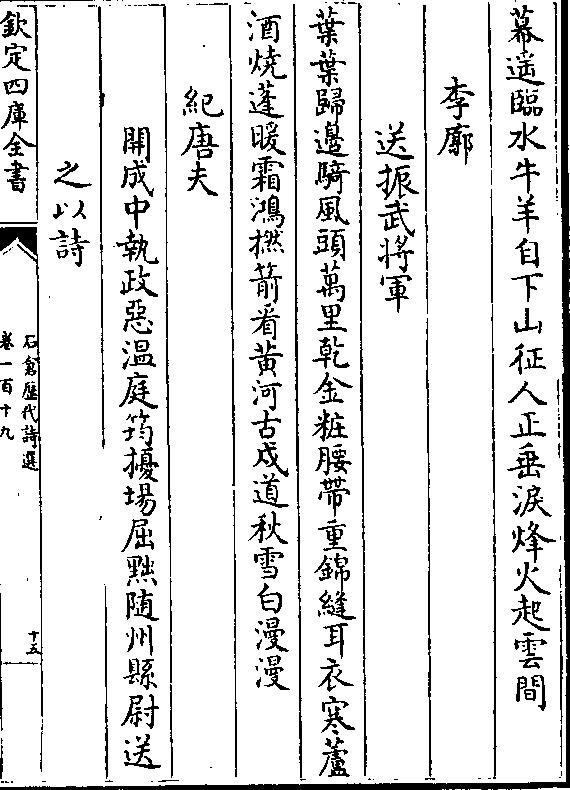 幕遥臨水牛羊自下山征人正垂淚烽火起雲間
李廓
送振武將軍
葉葉歸邊騎風頭萬里乾金粧腰帶重錦縫耳衣寒蘆
酒燒蓬暖霜鴻撚箭看黄河古戍道秋雪白漫漫
紀唐夫
開成中執政惡温庭筠擾場屈黜随州縣尉送
之以詩
欽定四庫全書
石倉歷代詩選
卷一百十九
十五